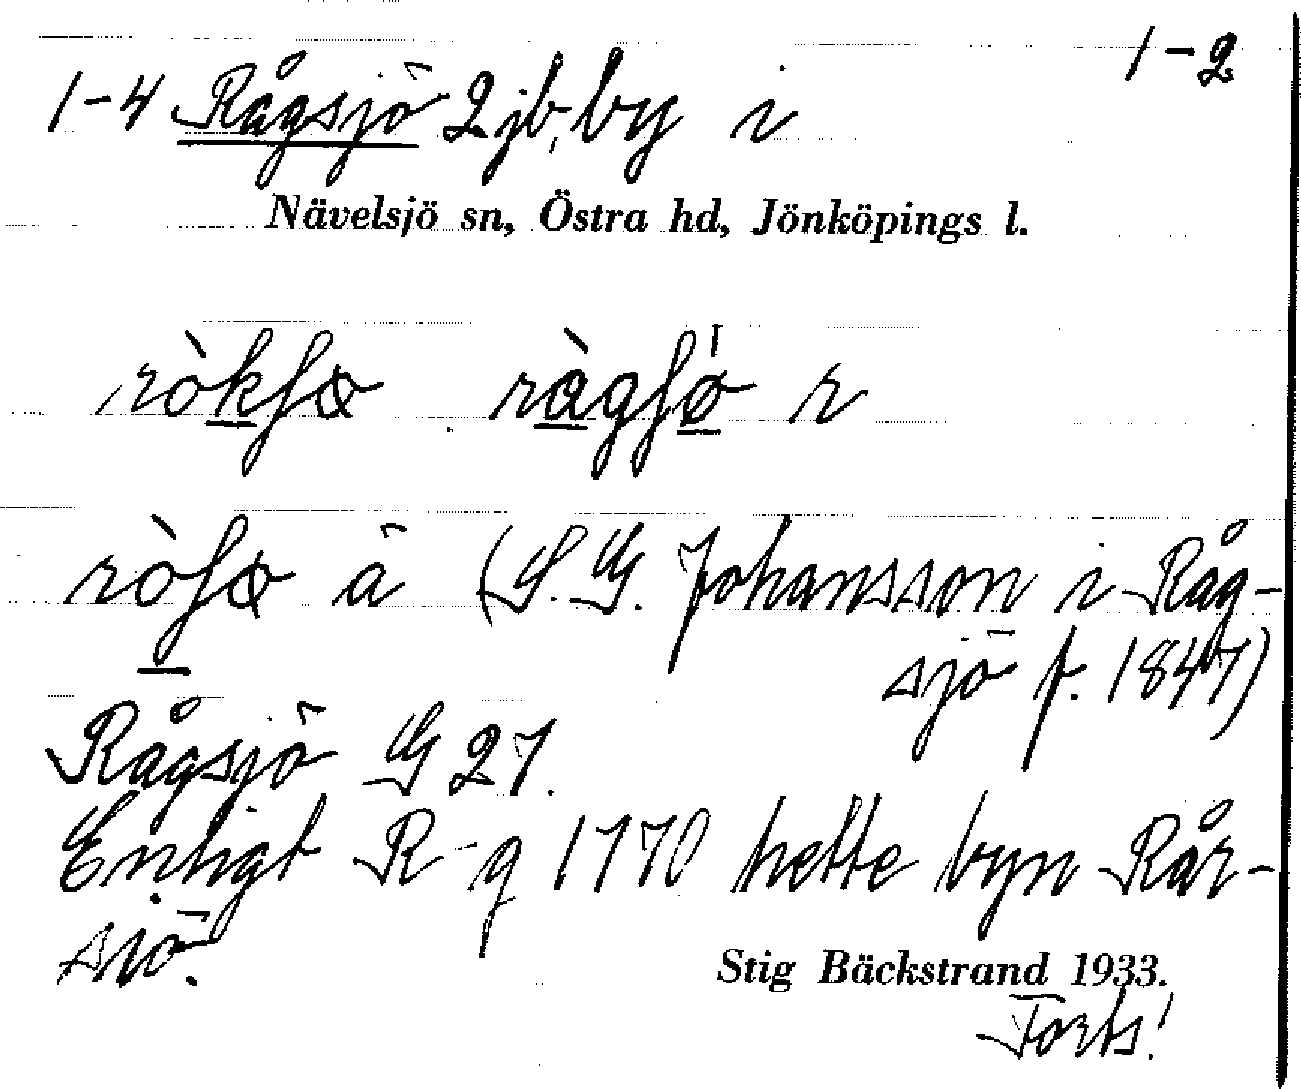 1-2
1-4 Rågsjö 2 jb, by i
Nävelsjö sn, Östra hd, Jönköpings l.
r
ä (S. G. Johansson i Råg-
sjö f. 1847)
Rågsjö G 27.
Enligt R-g 1770 hette byn Rår-
sjö.
Stig Bäckstrand 1933.
Forts!